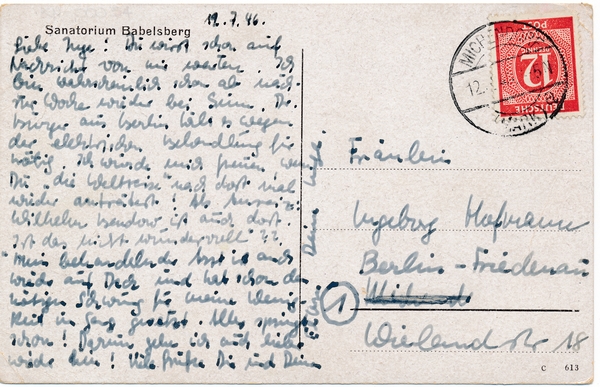 Sanatorium Babelsberg
12.7.46.
Liebe Inge! Du wirst schon auf
Nachricht von mir warten. Ich
bin wahrscheinlich schon ab näch
ster Woche wieder bei Sinn. Dr.
aus Berlin hält es wegen
der elektrischen Behandlung für
nötig. Ich würde mich freuen, wenn
Du "die Weltreise" nach dort mal
wieder antrittst! Als
Wilhelm Bendow ist auch dort.
Ist das nicht wundervoll??
Mein behandelnder Arzt ist auch
wieder auf Deck und hat schon den
nötigen Schwung für meine Wenig-
keit in Gang gesetzt. Alles springt
schon! Darum gehe ich auch lieber
wieder hin! Viele Grüße Dir und Deiner
Deine
DEUTSCHE POST
12
PFENNIG
12.
(MARK)
Fräulein
Ingeborg Hofmann
Berlin-Friedenau
1
Wielandstr 18
C 613